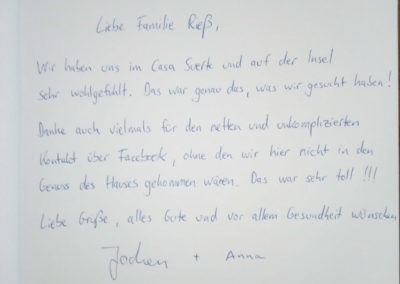 Liebe Familie Rieß,
Wir haben uns im Casa Suerte und auf der Insel
sehr wohlgefühlt. Das war genau das, was wir gesucht haben!
Danke auch vielmals für den netten und unkomplizierten
Kontakt über Facebook, ohne den wir hier nicht in den
Genuss des Hauses gekommen wären. Das war sehr toll!!!
Liebe Grüße, alles Gute und vor allem Gesundheit wünschen
Jochen + Anna